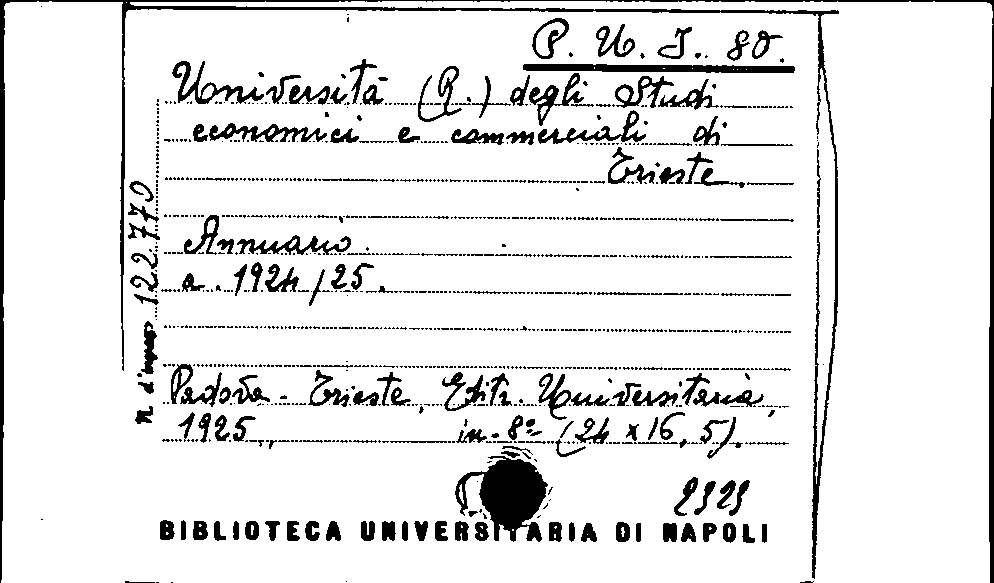 P. U. I. 80.
Università (R.) degli Studi
economici e commerciali di
Trieste.
Annuario.
a. 1924/25.
Padova - Trieste, Editr. Universitaria,
1925.,
in-8º (24 x 16,5).
n. d'ingresso 122.770
BIBLIOTECA UNIVERSITARIA DI NAPOLI